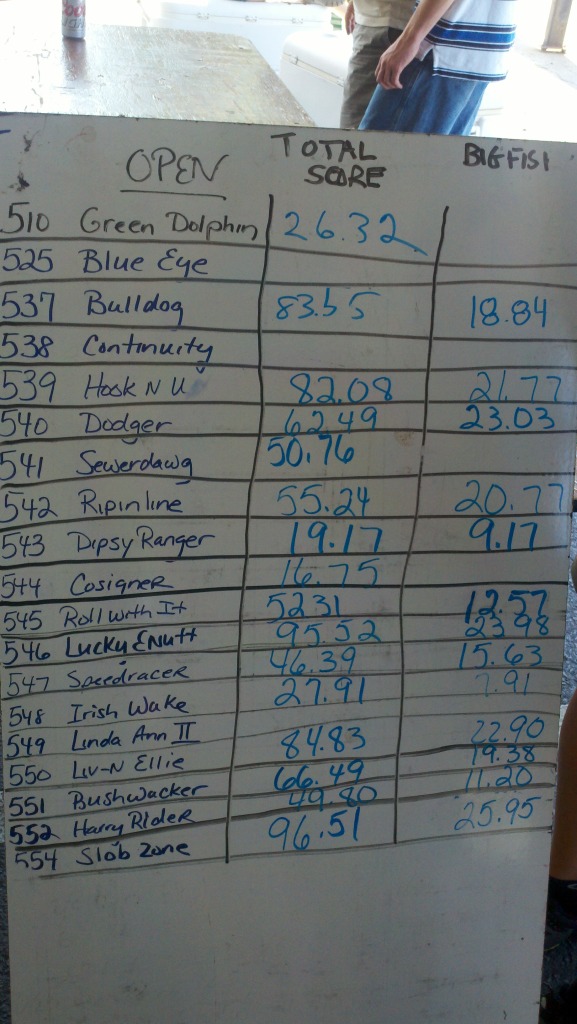 OPEN TOTAL SCORE BIG FISH
510 Green Dolphin 26.32
525 Blue Eye
537 Bulldog 83.55 18.84
538 Continuity
539 Hook N U 82.08 21.77
540 Dodger 62.49 23.03
541 Sewerdawg 50.76
542 Ripinline 55.24 20.77
543 Dipsy Ranger 19.17 9.17
544 Cosigner 16.75
545 Roll with It 52.31 12.57
546 Lucky Enutt 95.52 23.98
547 Speedracer 46.39 15.63
548 Irish Wake 27.91 7.91
549 Linda Ann II 84.83 22.90
550 Liv-N Ellie 66.49 19.38
551 Bushwacker 49.80 11.20
552 Harry Rider 96.51 25.95
554 Slob Zone